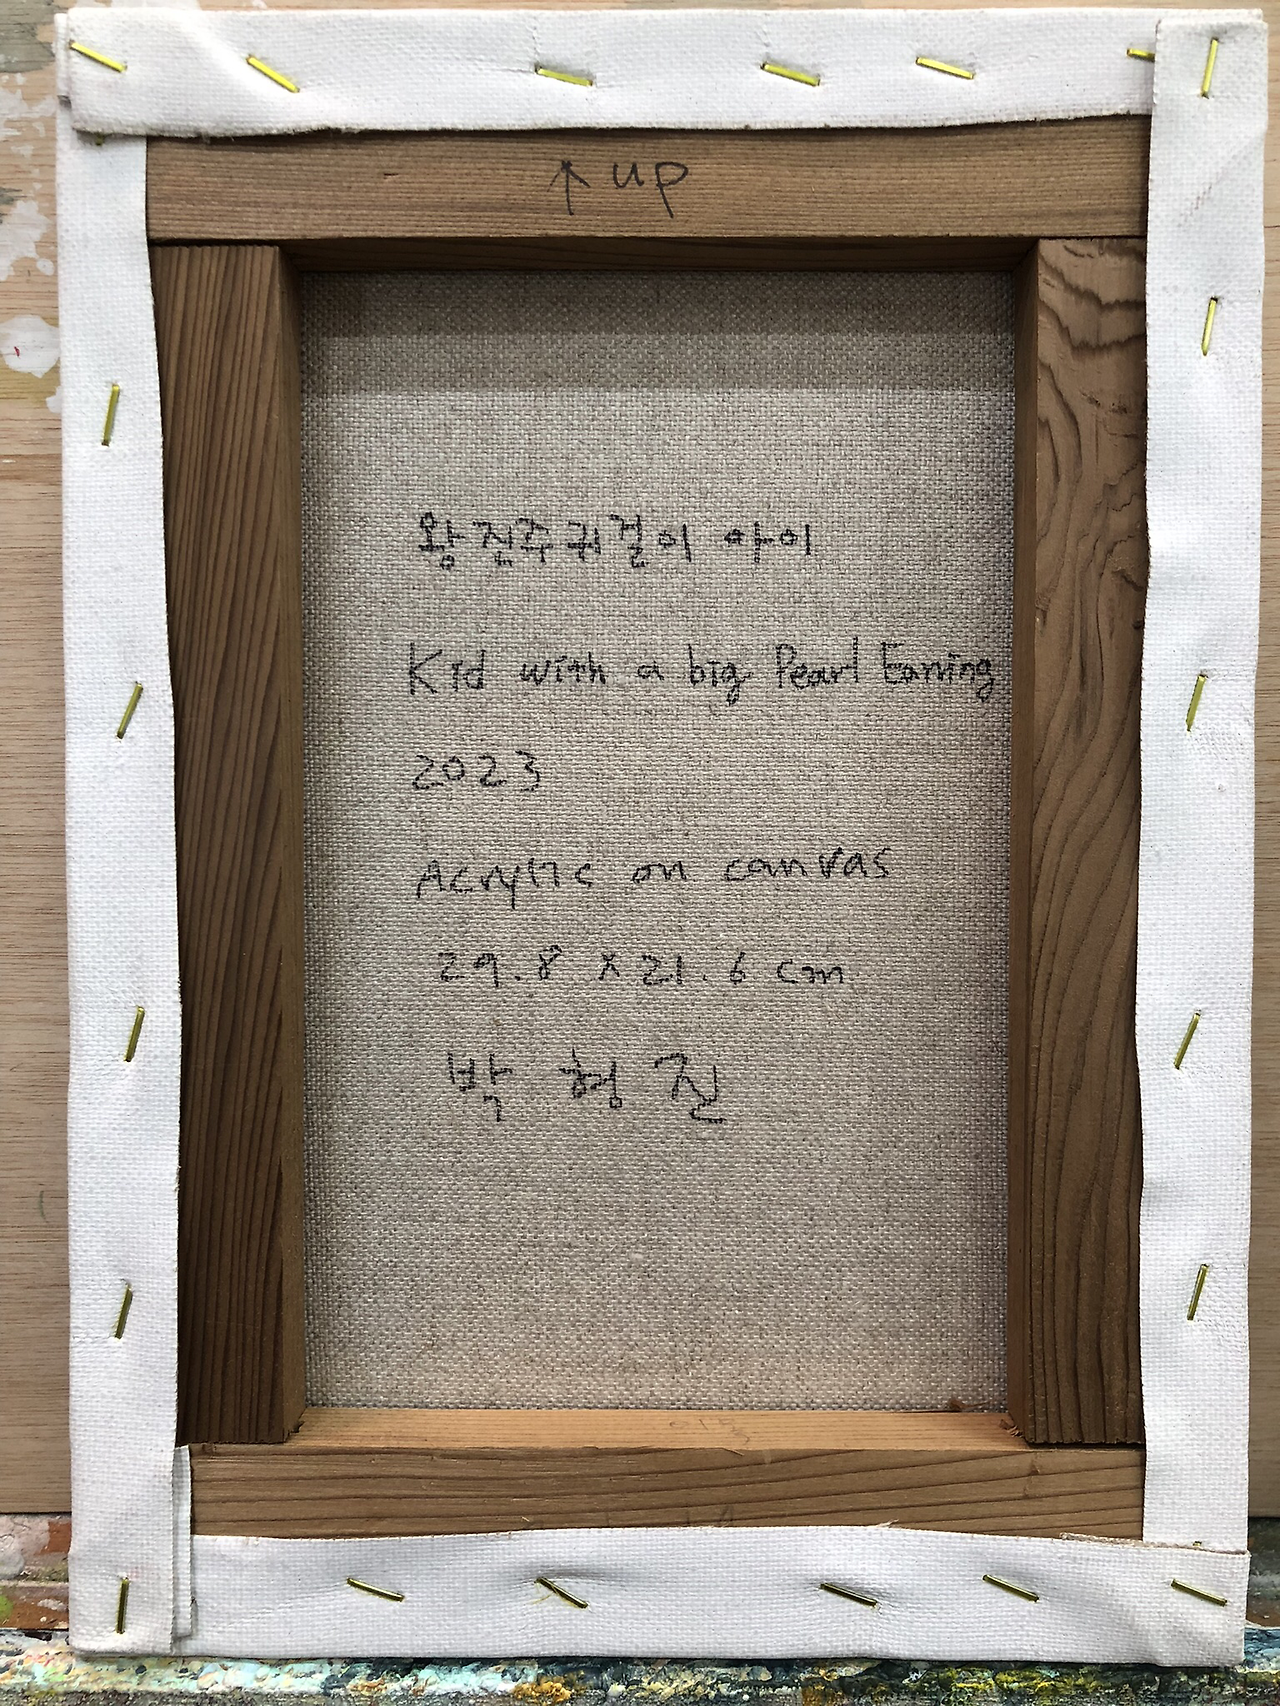 ↑ up
왕진주귀걸이 아이
Kid with a big Pearl Earring
2023
Acrylic on canvas
29.8 x 21.6 cm
박형진